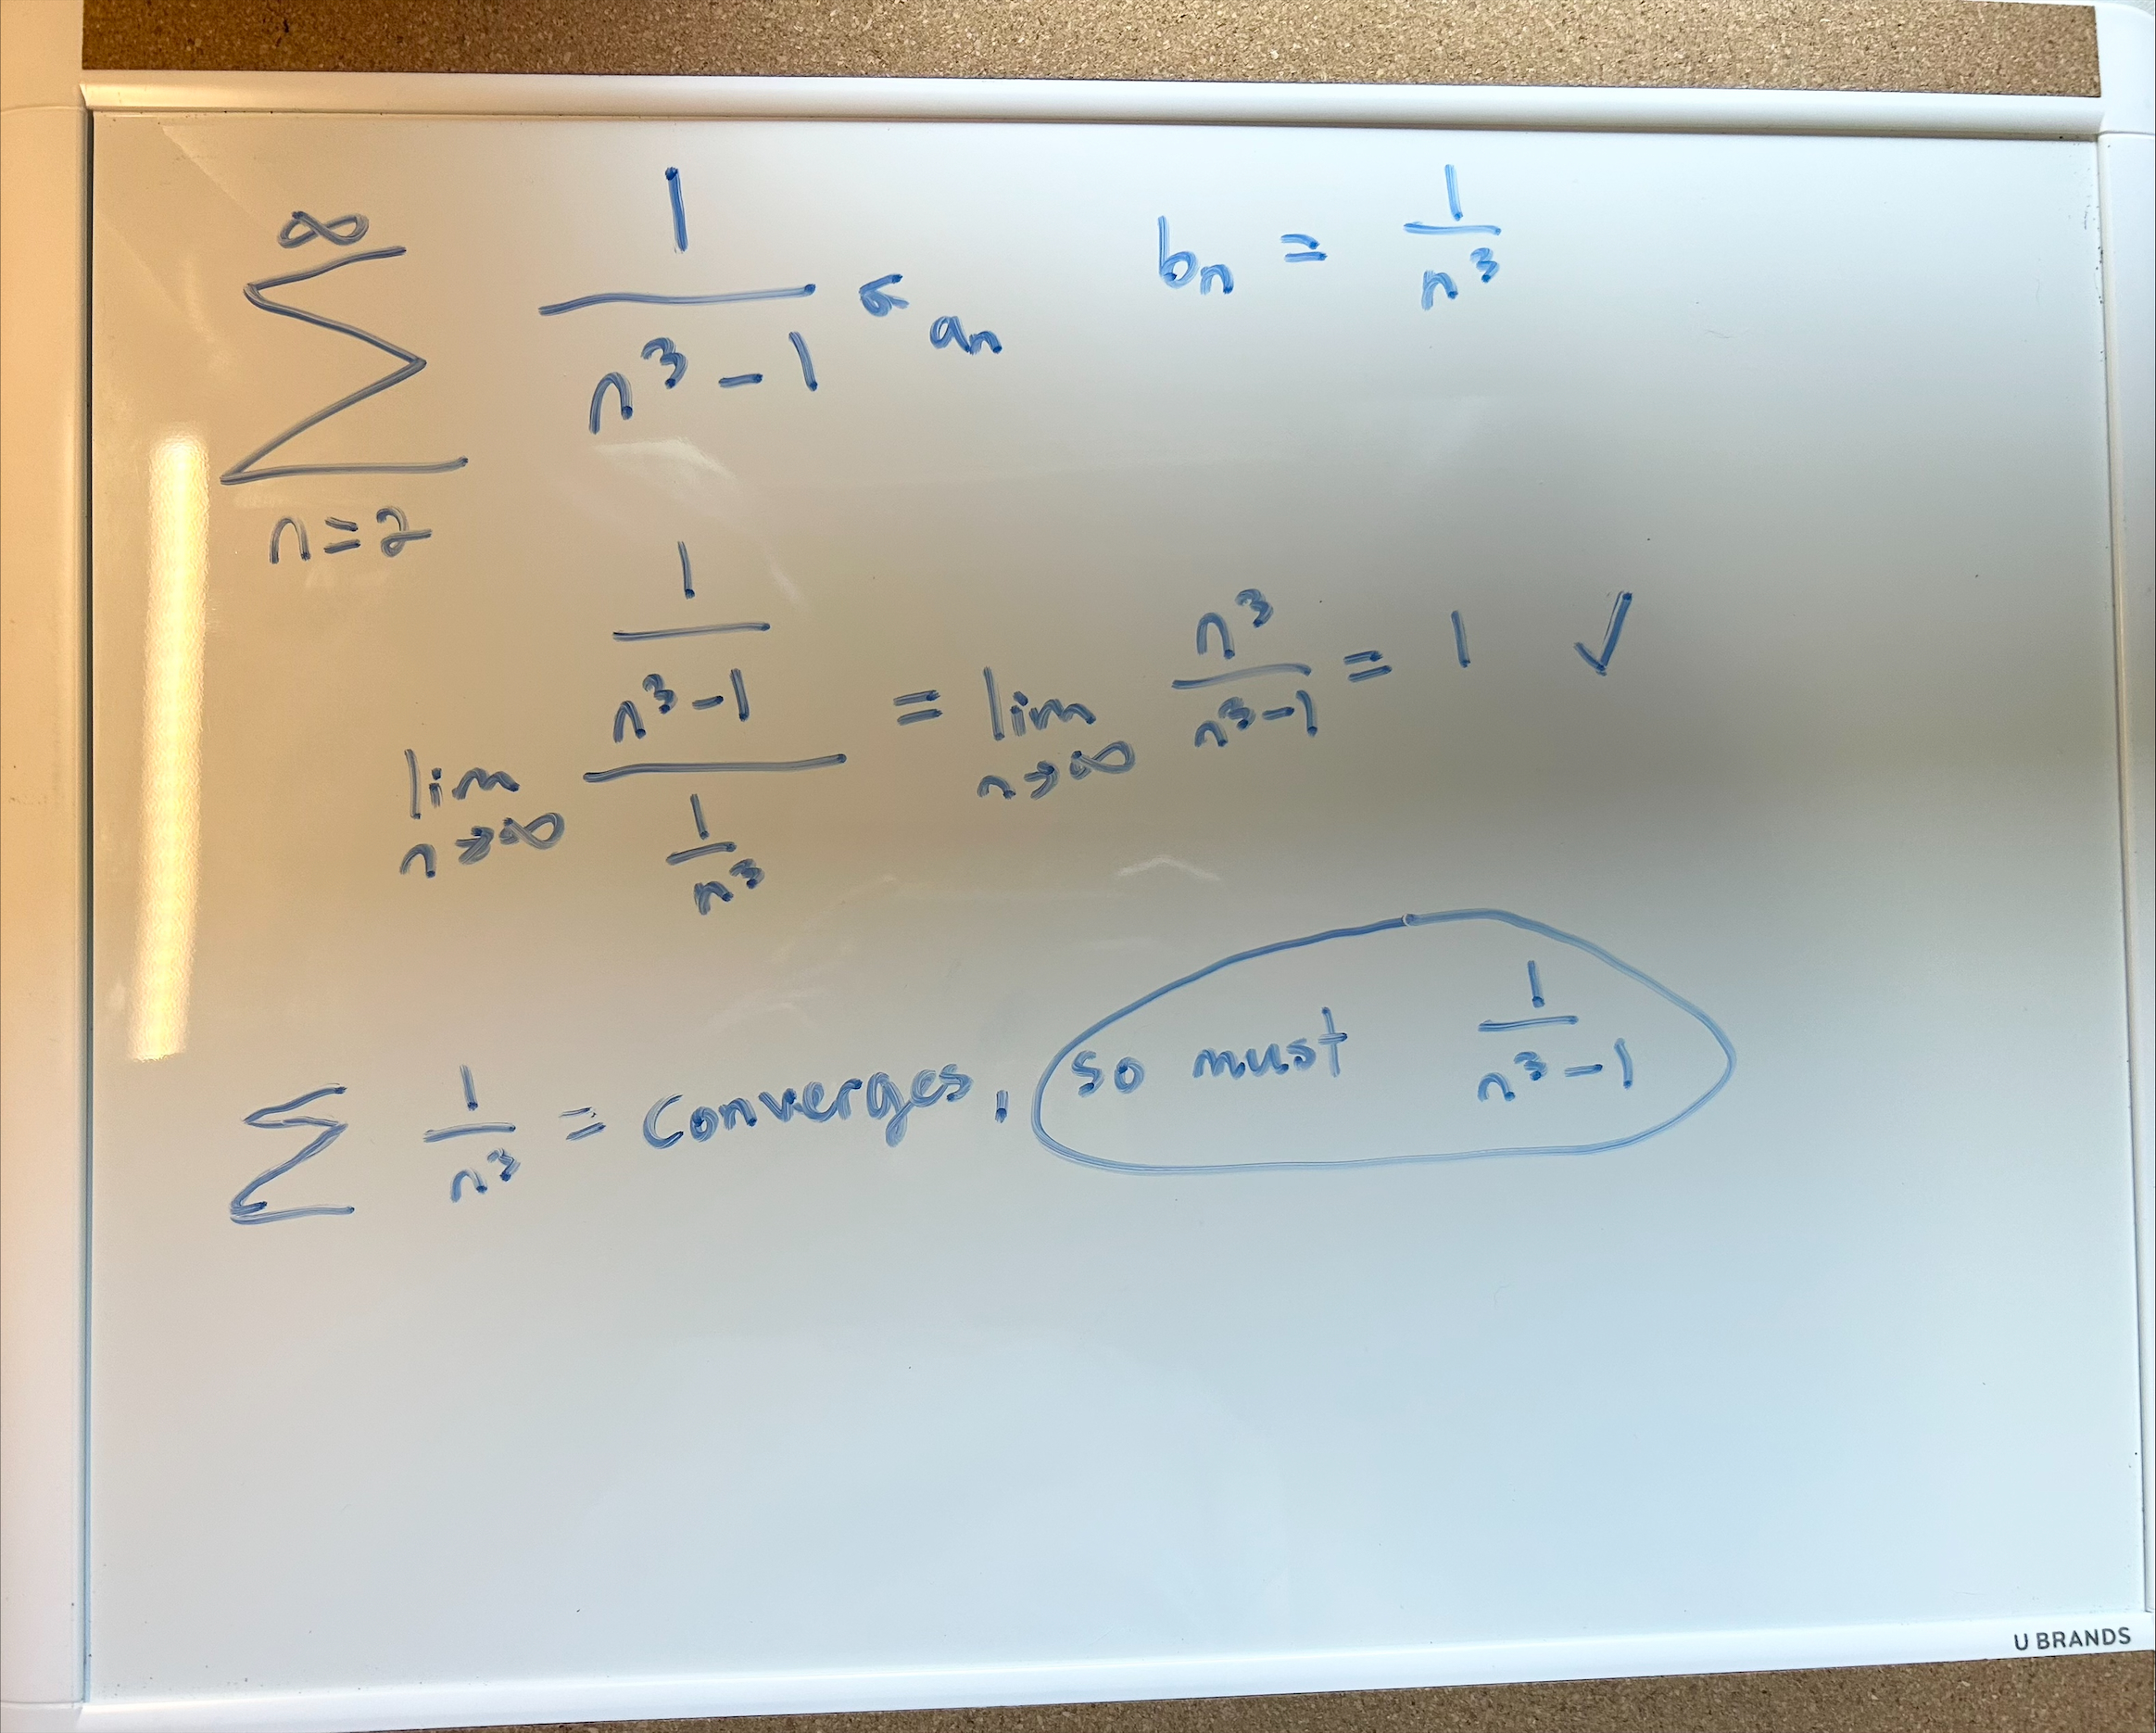 ∞
∑ 1/(n³ - 1) ← aₙ bₙ = 1/n³
n=2
lim n→∞ (1/(n³-1))/(1/n³) = lim n→∞ n³/(n³-1) = 1 ✓
∑ 1/n³ = Converges, so must 1/(n³-1)
U BRANDS